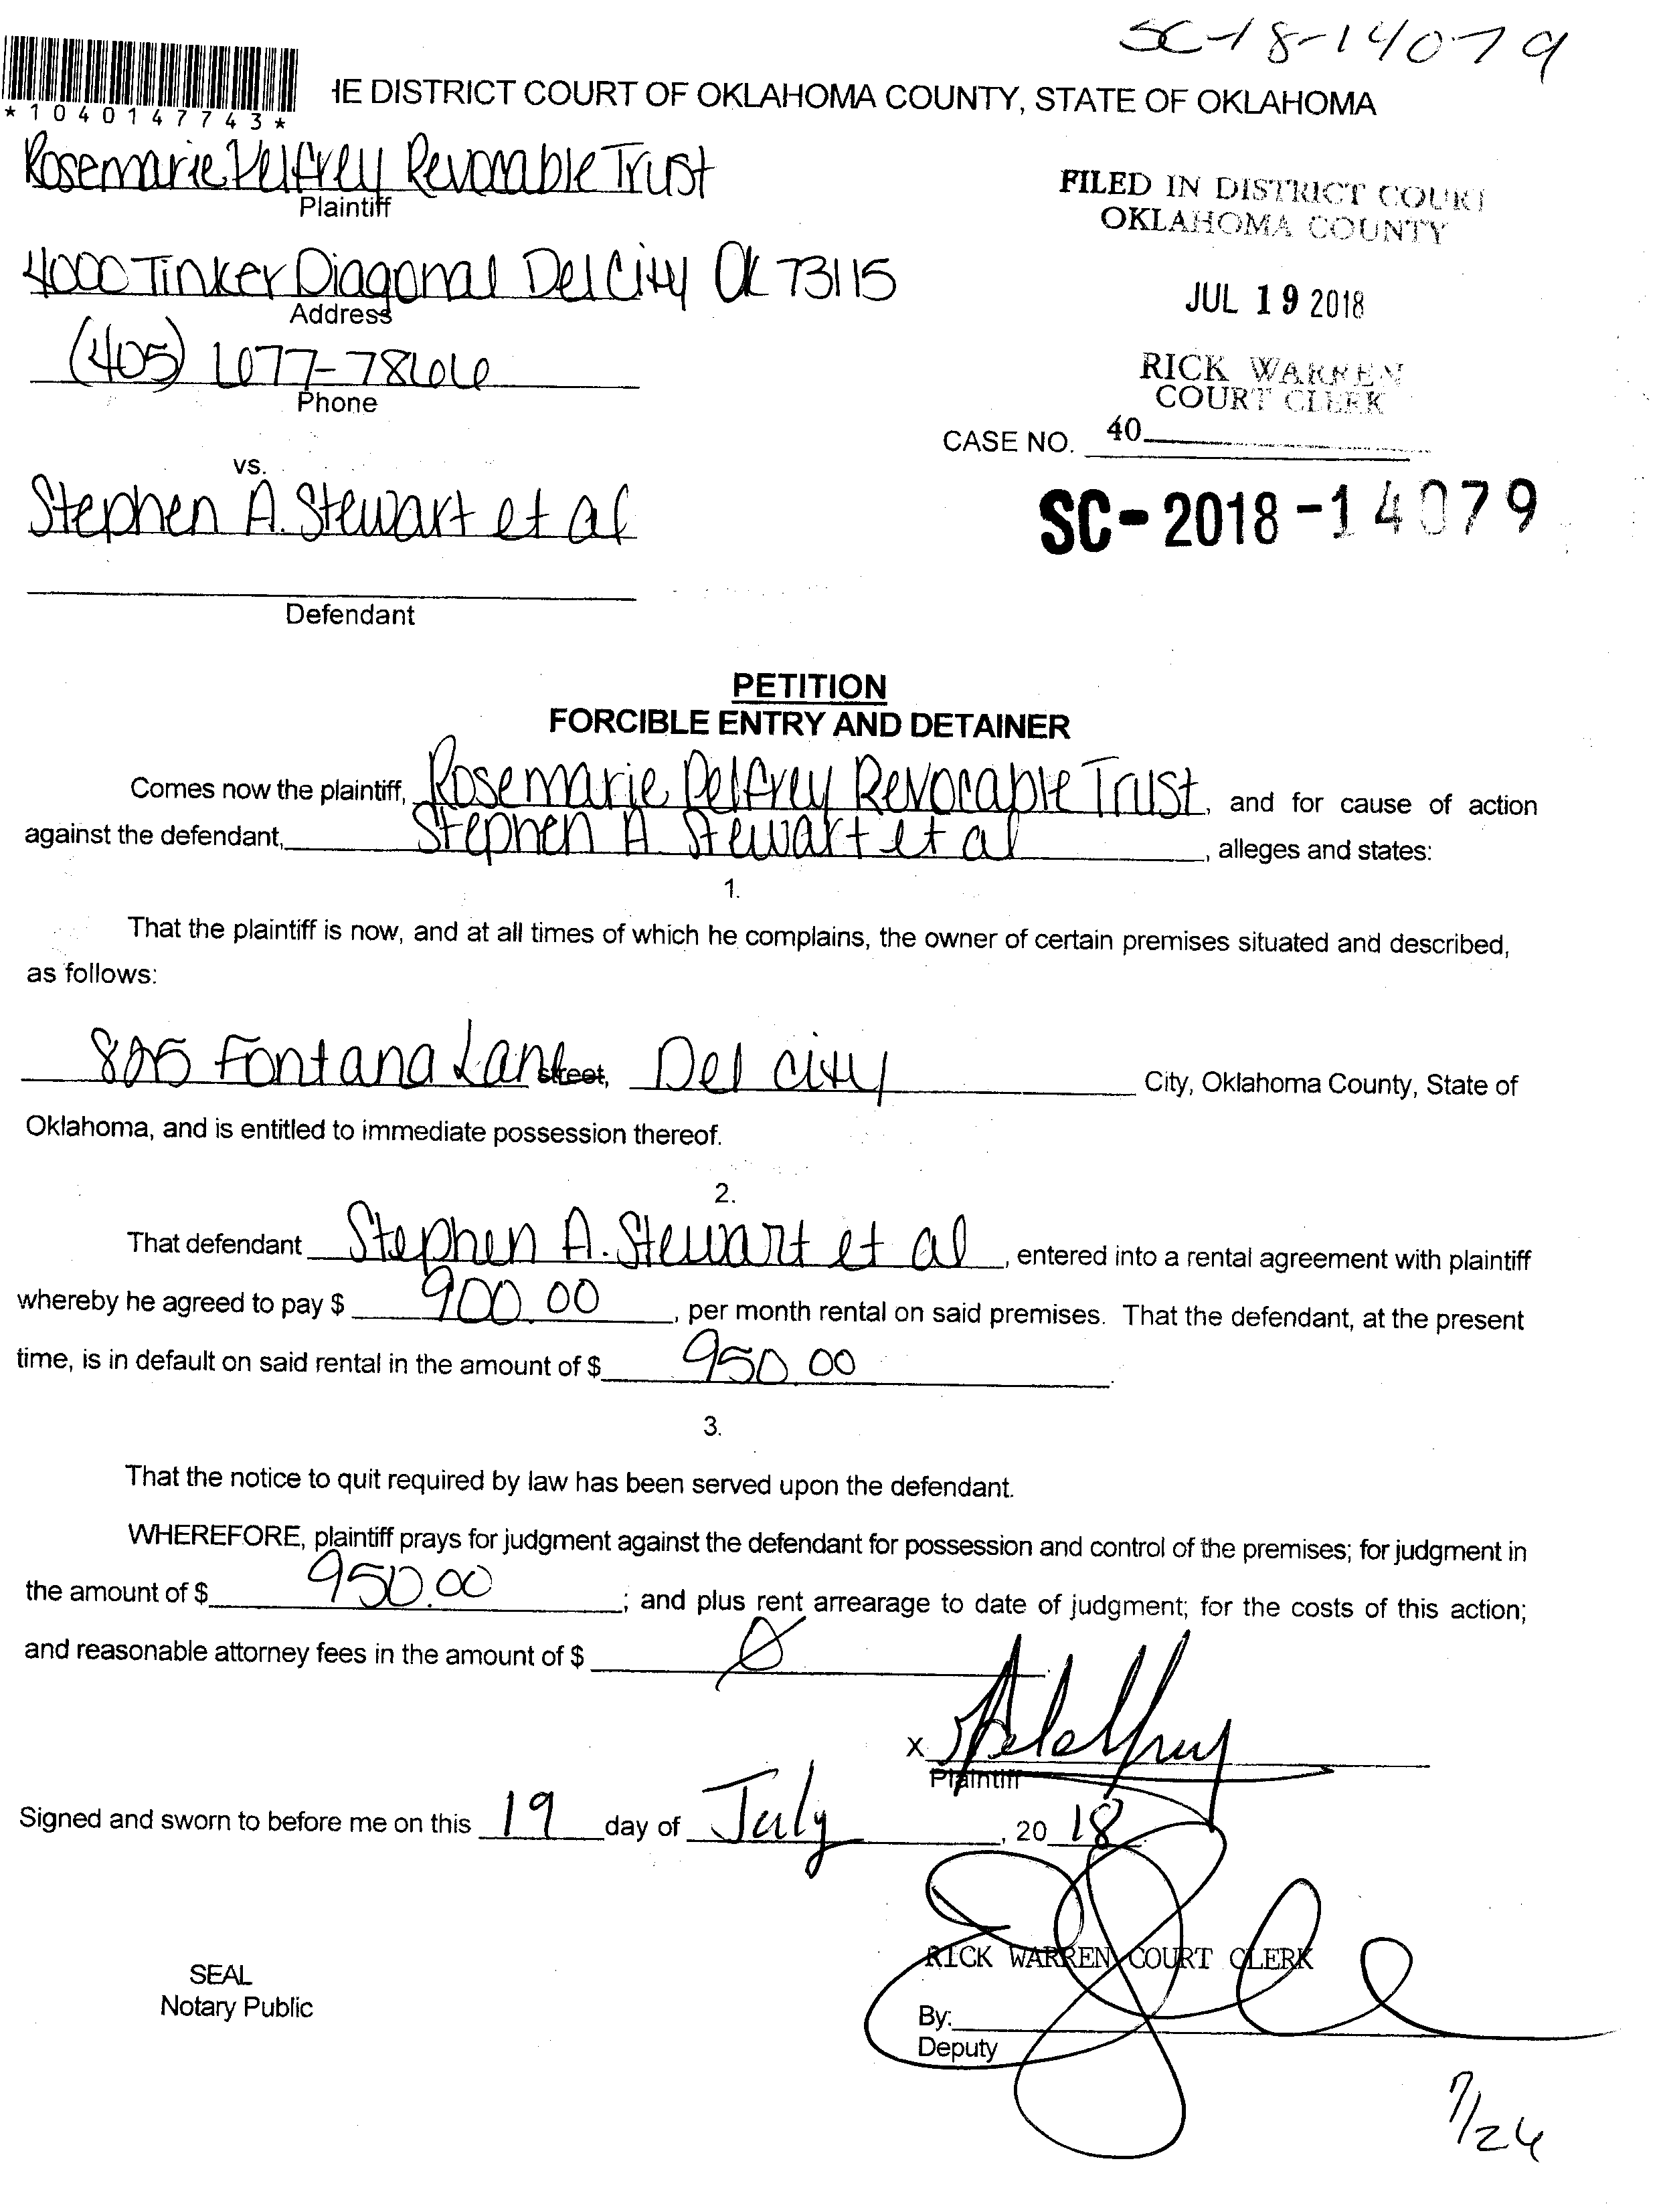 SC-18-14079
*1040147743*
HE DISTRICT COURT OF OKLAHOMA COUNTY, STATE OF OKLAHOMA
Rosemarie Pelfrey Revocable Trust
Plaintiff
FILED IN DISTRICT COURT
OKLAHOMA COUNTY
4000 Tinker Diagonal Del City OK 73115
Address
JUL 19 2018
(405) 677-7866
Phone
RICK WARREN
COURT CLERK
CASE NO. 40
vs.
Stephen A. Stewart et al
SC-2018-14079
Defendant
PETITION
FORCIBLE ENTRY AND DETAINER
Comes now the plaintiff, Rosemarie Pelfrey Revocable Trust, and for cause of action
against the defendant, Stephen A Stewart et al, alleges and states:
1.
That the plaintiff is now, and at all times of which he complains, the owner of certain premises situated and described,
as follows:
825 Fontana Lane street, Del city City, Oklahoma County, State of
Oklahoma, and is entitled to immediate possession thereof.
2.
That defendant Stephen A. Stewart et al, entered into a rental agreement with plaintiff
whereby he agreed to pay $ 900.00, per month rental on said premises. That the defendant, at the present
time, is in default on said rental in the amount of $ 950.00.
3.
That the notice to quit required by law has been served upon the defendant.
WHEREFORE, plaintiff prays for judgment against the defendant for possession and control of the premises; for judgment in
the amount of $ 950.00; and plus rent arrearage to date of judgment; for the costs of this action;
and reasonable attorney fees in the amount of $ Ø
X
Plaintiff
Signed and sworn to before me on this 19 day of July, 2018.
RICK WARREN COURT CLERK
SEAL
Notary Public
By:
Deputy
7/26